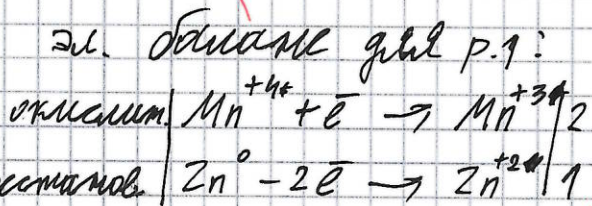 эл. баланс для р.1:
окислит. | Mn⁺⁴ + ē → Mn⁺³ | 2
сстанов. | Zn⁰ - 2ē → Zn⁺² | 1